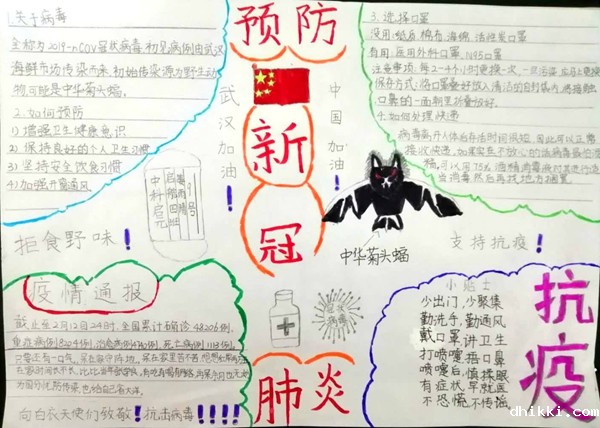 预防
新
冠
肺炎
1.关于病毒
全称为2019-nCOV冠状病毒,初见病例由武汉
海鲜市场传染而来,初始传染源为野生动
物可能是中华菊头蝠。
2.如何预防
1)增强卫生健康意识
2)保持良好的个人卫生习惯
3)坚持安全饮食习惯
4)加强开窗通风
武汉加油!
中国加油!
3.选择口罩
没用:纸质、棉布、海绵、活性炭口罩
有用:医用外科口罩、N95口罩
注意事项:每2-4个小时更换一次,一旦污染,应马上更换
保存方式:将口罩叠好放入清洁的自封袋内,将接触
口鼻的一面朝里折叠放好。
4.如何处理快递
病毒离开人体后存活时间很短,因此可以正常
接收快递,如果实在不放心的话
可以用75%酒精消毒液对其进行
消毒然后再找地方搁置。
拒食野味!
中华菊头蝠
支持抗疫!
疫情通报
截止至2月12日24时,全国累计确诊48206例,
重症病例8204例,治愈病例4740例,死亡病例1113例。
向白衣天使们致敬!抗击病毒!!!!
冠状病毒
小贴士
少出门,少聚集
勤洗手,勤通风
戴口罩,讲卫生
打喷嚏,捂口鼻
喷嚏后,慎揉眼
有症状,早就医
不恐慌,不传谣
抗疫
dhikki.com